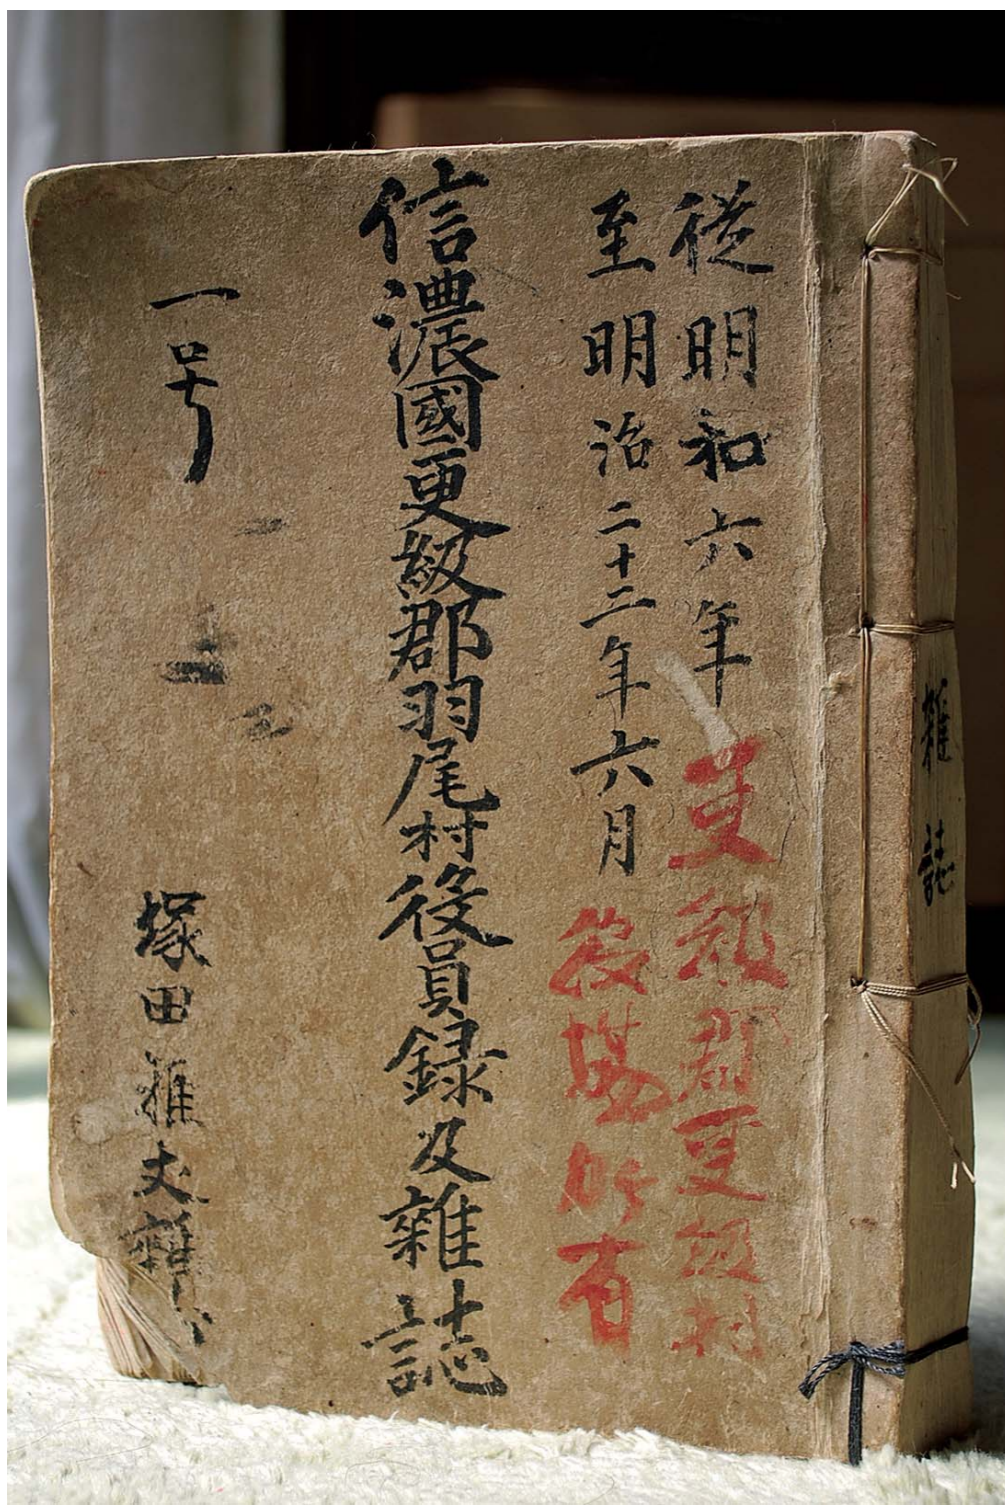 従明和六年
至明治二十二年六月
更級郡更級村
役場所有
信濃國更級郡羽尾村役員録及雜誌
一号
塚田雅丈
雜誌